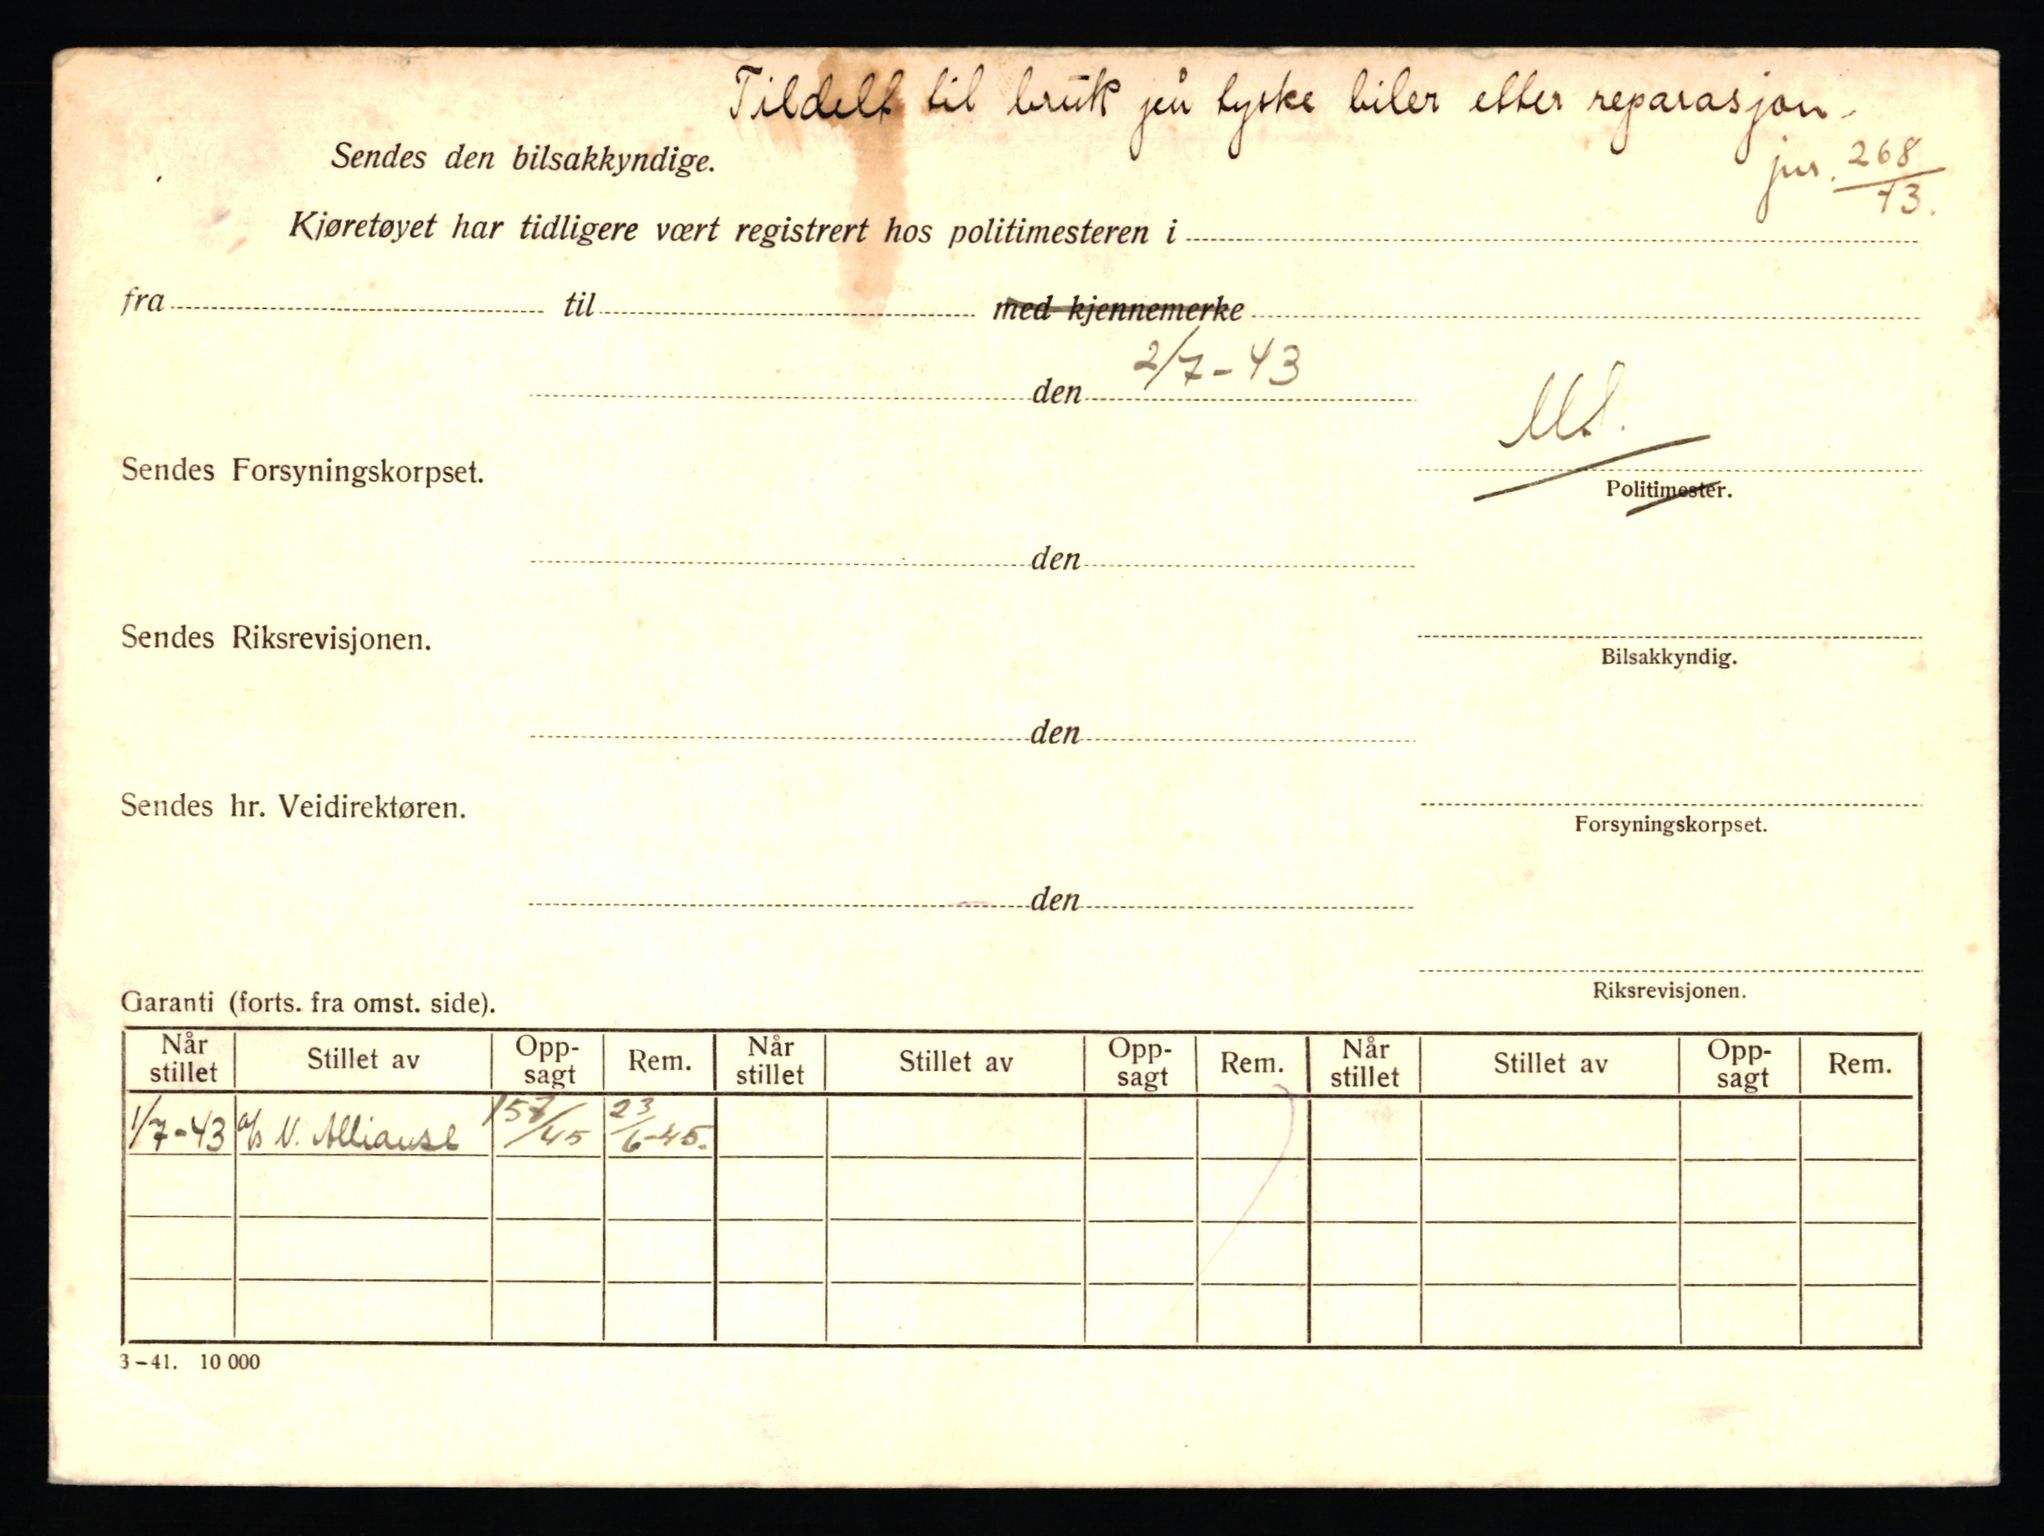 Tildelt til bruk på tyske biler etter reparasjon.
jnr. 268/43.
Sendes den bilsakkyndige.
Kjøretøyet har tidligere vært registrert hos politimesteren i
fra til med kjennemerke
den 2/7-43
Sendes Forsyningskorpset.
Politimester.
den
Sendes Riksrevisjonen.
Bilsakkyndig.
den
Sendes hr. Veidirektøren.
Forsyningskorpset.
den
Riksrevisjonen.
Garanti (forts. fra omst. side).
Når stillet Stillet av Opp-sagt Rem. Når stillet Stillet av Opp-sagt Rem. Når stillet Stillet av Opp-sagt Rem.
1/7-43 a/s N. Alliance 157/45 23/6-45.
3-41. 10 000